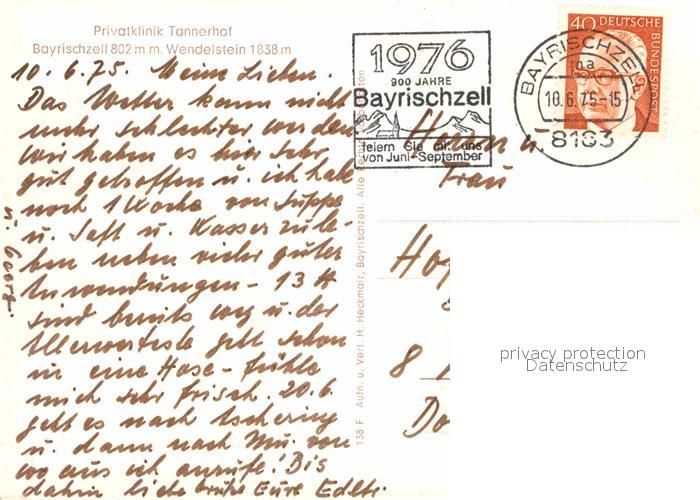 Privatklinik Tannerhof
Bayrischzell 802 m m. Wendelstein 1838 m
10.6.75. Meine Lieben.
Das Wetter kann nicht
mehr schlechter werden
wir haben es hier sehr
gut getroffen u. ich habe
noch 1 Woche von Suppe
u. Saft u. Wasser zu le-
ben neben vieler guter
Anwendungen - 13 ℔
sind bereits weg u. der
Allerwerteste geht schon
in eine Hose - fühle
mich sehr frisch. 20.6.
geht es nach Tschering
u. dann nach Mü. von
wo aus ich anrufe! Bis
dahin liebe Grüße Eure
u. Georg
138 F Aufn. u. Verl. H. Heckmair, Bayrischzell. Alle Rechte
1976
900 JAHRE
Bayrischzell
feiern Sie mit uns
von Juni-September
BAYRISCHZELL
na
10.6.75-15
8163
40 DEUTSCHE
BUNDESPOST
Herrn u.
Frau
8
privacy protection
Datenschutz